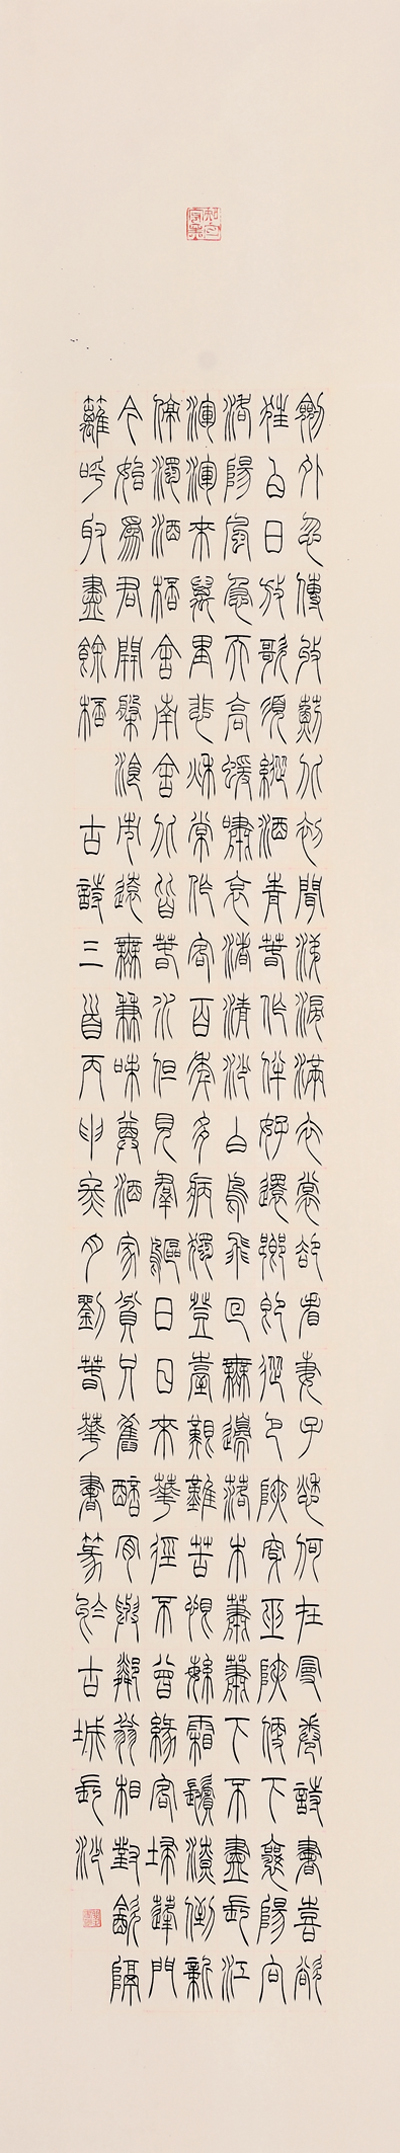 劍外忽傳收薊北初聞涕淚滿衣裳卻看妻子愁何在曼卷詩書喜欲
狂白日放歌須縱酒青春作伴好還鄉即從巴陜穿巫陜便下襄陽向
洛陽風急天高猨嘯哀渚清沙白鳥飛回無邊落木蕭蕭下不盡長江
渾渾來萬里悲秋常作客百年多病獨登臺艱難苦恨緐霜鬢潦倒新
停濁酒桮舍南舍北皆春水但見群鷗日日來華徑不曾緣客埽蓬門
今始為君開槃飧市遠無兼味尊酒家貧只舊醅肎與鄰翁相對飲隔
籬呼取盡餘桮 古詩三首丙申月劉春華書篆於古城長沙